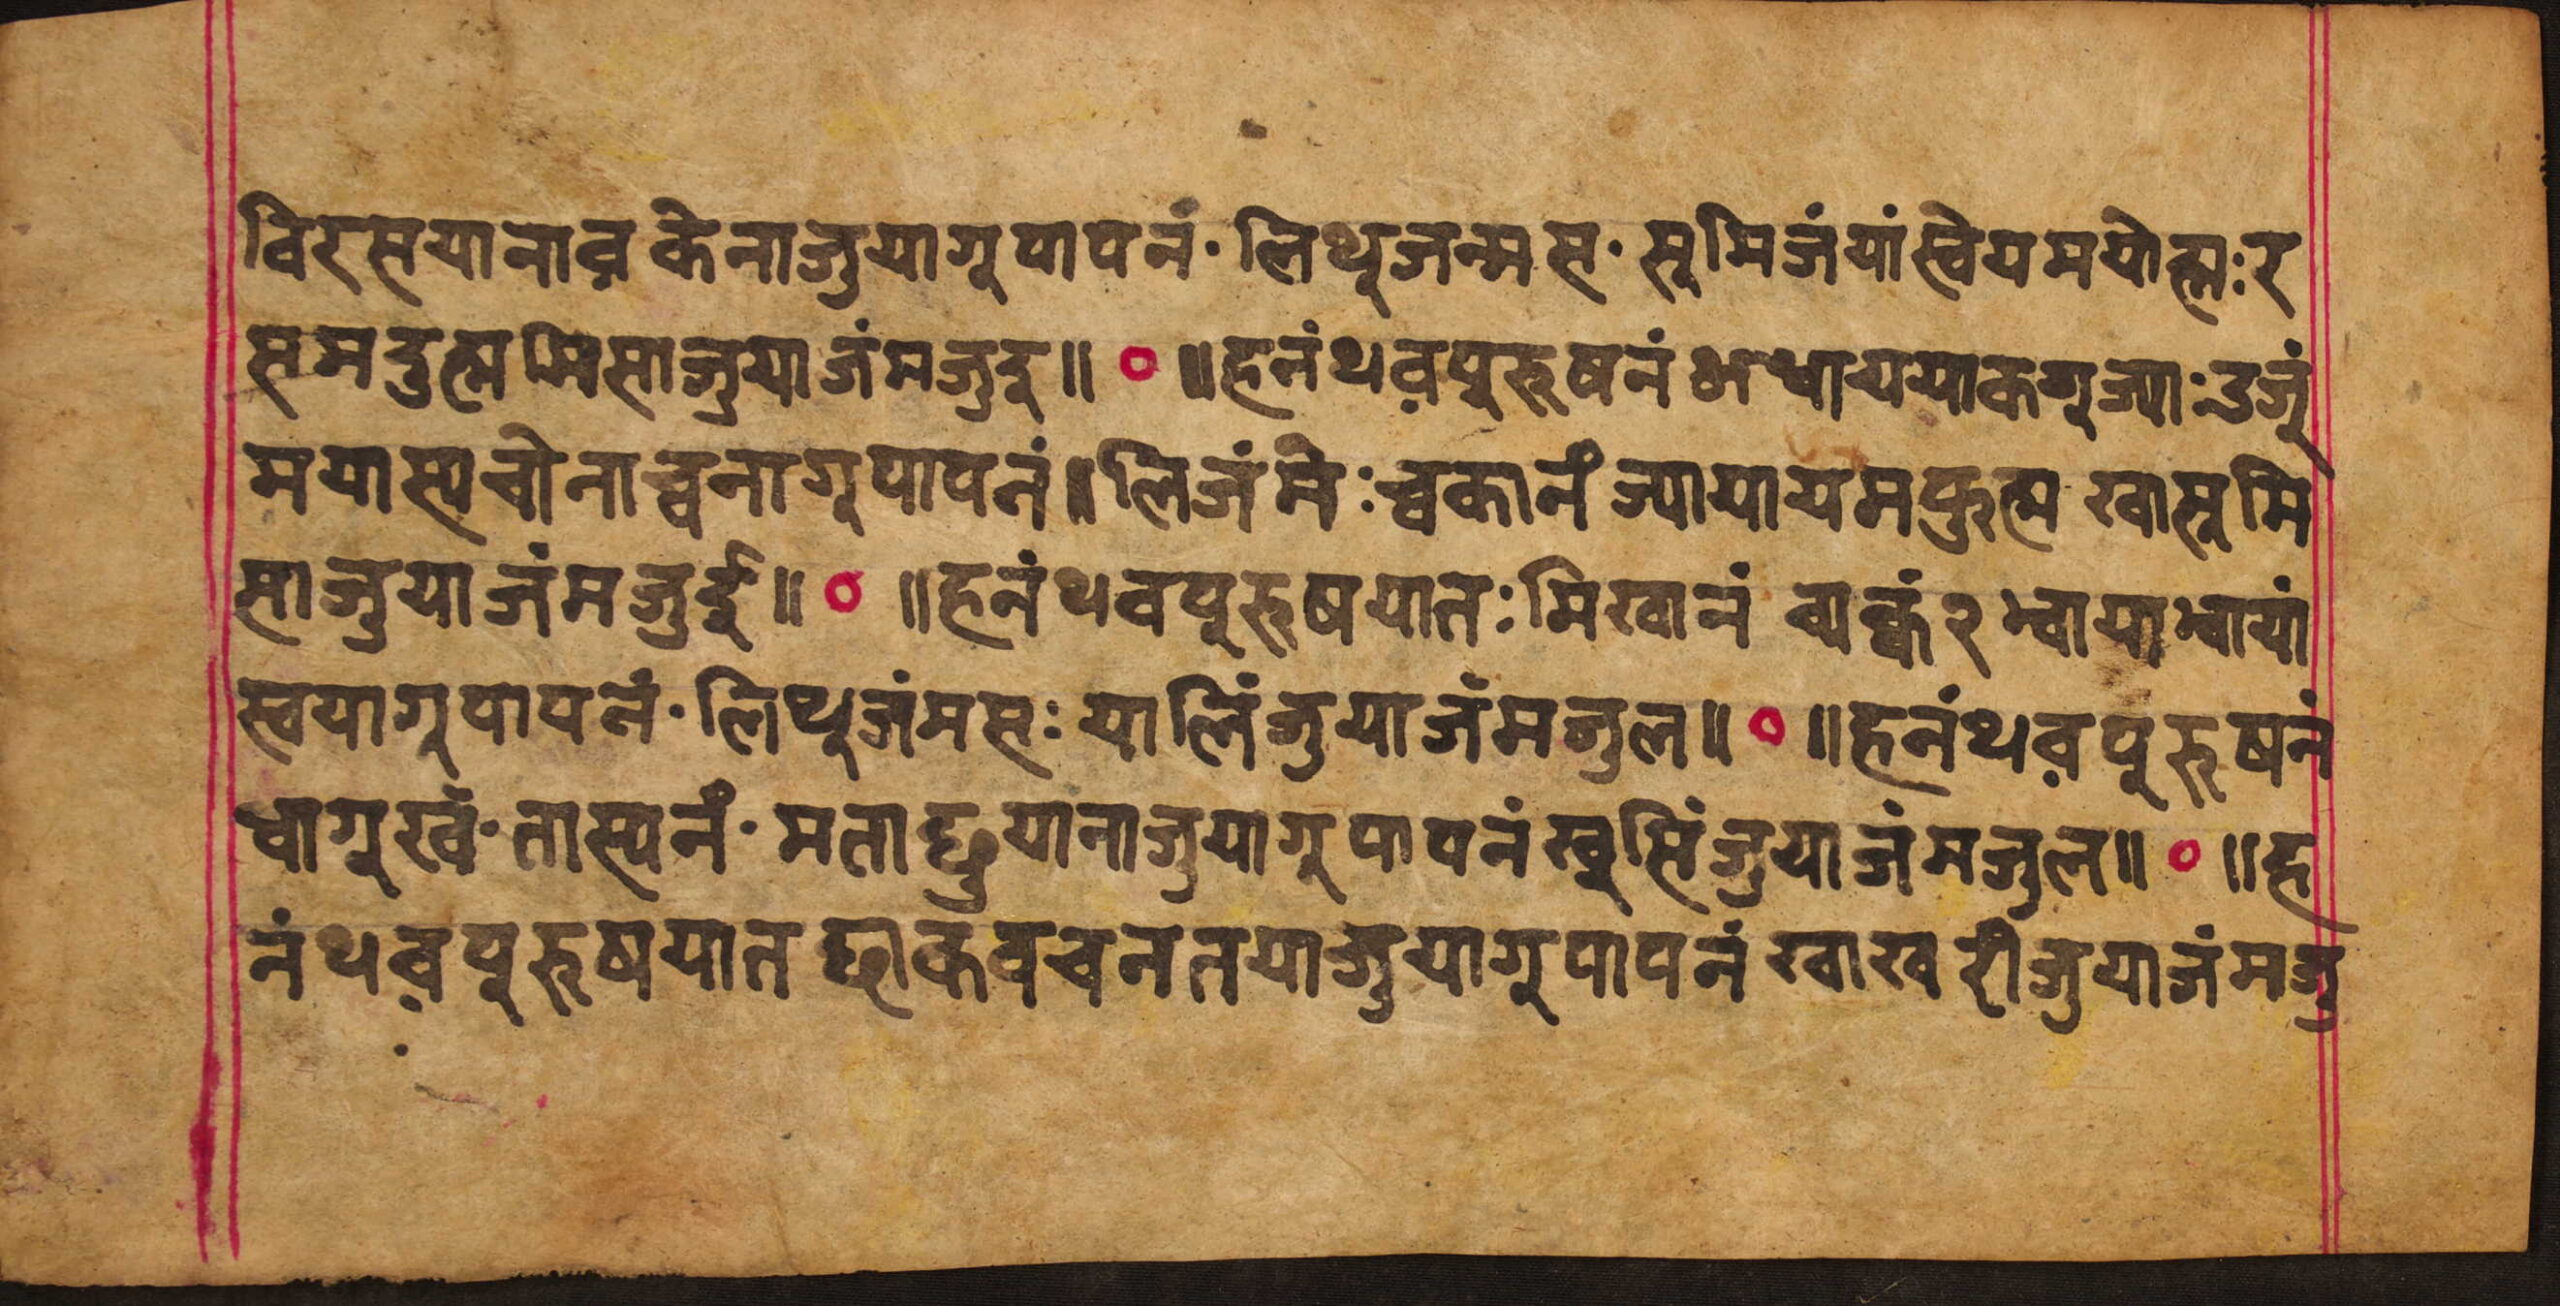 विरसयानाव़ केनाजुयागूपापनं· लिथूजन्मस· सूमिजंयांस्वेयमयोत्म्रः र
समदुत्म्र मिसाजुयाजंमजुइ॥ ० ॥हनंथव़पूरूषनं अधायययाकगूज्याः उजूं
मयास्यचोनाच्वनागूपापनं॥ लिजंमेः च्वकानं ज्यायायमफुत्म्र ख्वासूमि
साजुयाजंमजुई॥ ० ॥हनंथवपूरूषयातः मिखानं ब्यक्वं२ भ्वायाभ्वायां
स्वयागूपापनं· लिथूजंमसः यालिंजुयाजंमजुल॥ ० ॥हनंथव़पूरूषनं
धागूखँ· तास्यनं· मताछुयानाजुयागूपापनं ख्वूसिंजुयाजंमजुल॥ ० ॥ह
नंथव़पूरूषयात छाकवचनतयाजुयागूपापनं ख्वाखरीजुयाजंमजु